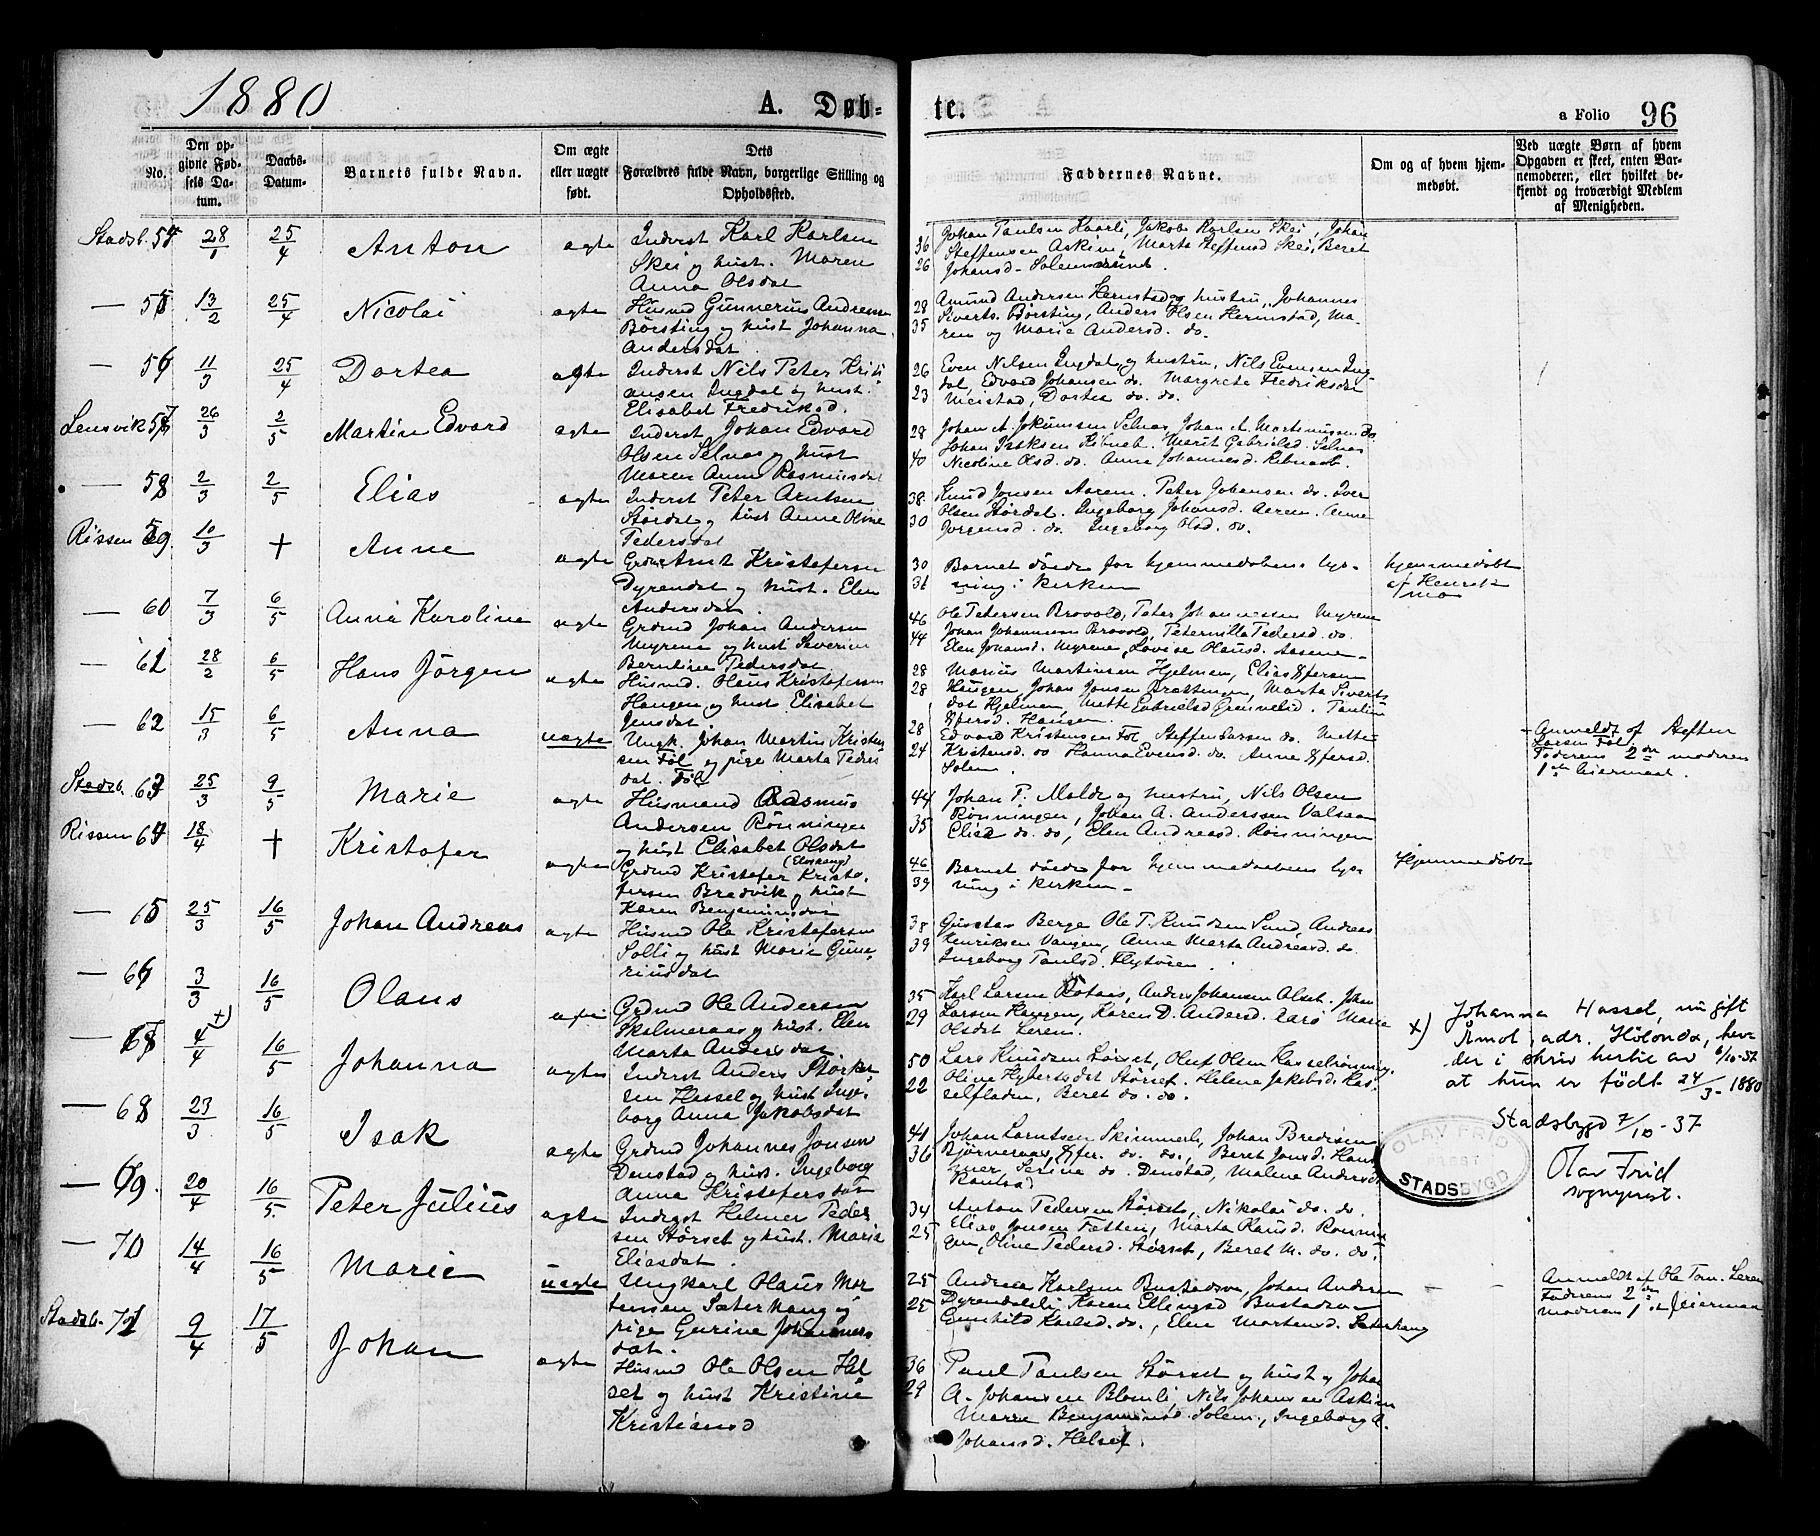 1880
A. Døb-
te.
a Folio 96
No.
Den op-
givne Fød-
sels Da-
tum.
Daabs-
Datum.
Barnets fulde Navn.
Om ægte
eller uægte
født.
Dets
Forældres fulde Navn, borgerlige Stilling og
Opholdssted.
Faddernes Navne.
Om og af hvem hjem-
medøbt.
Ved uægte Børn af hvem
Opgaven er skeet, enten Bar-
nemoderen, eller hvilket be-
kjendt og troværdigt Medlem
af Menigheden.
Stadsb. 54 28/1 25/4 Anton ægte
Inderst Karl Karlsen
Skei og hust. Maren
Anna Olsdat
36 Johan Paulsen Haarli, Jakob Karlsen Skei, Johan
Steffensen Askim, Marta Steffensd Skei, Beret
26 Johansd
— 55 13/2 25/4 Nicolai ægte
Husmd Gunnerius Andersen
Børsting og hust Johanna
Andersdat
28 Amund Andersen Hermstad og hustru, Johannes
35 Siverts. Børsting, Anders Olsen Hermstad, Ma-
ren og Marie Andersd. do.
— 56 11/3 25/4 Dortea ægte
Inderst Nils Peter Kristi-
ansen Ingdal og hust.
Elisabet Fredriksd.
26 Even Nilsen Ingdal og hustru, Nils Evensen Ing-
dal, Edvard Johansen do. Margrete Fredriksdn
23 Meistad, Dortea do. do.
Lensvik 57 26/3 2/5 Martin Edvard ægte
Inderst Johan Edvard
Olsen Selnæs og hust
Maren Anna Rasmusdat
28 Johan A. Johan A. Martinussen do.
Johan Isaksen Marit Gabrielsd. Selnæs
40 Nicoline Olsd. do. Anna Johannesd.
— 58 2/3 2/5 Elias ægte
Inderst Peter Arntsen
Størdal og hust Anne Oline
Pedersdat
38 Knud Jonsen Aarem. Peter Johansen do. Iver
Olsen Størdal. Ingeborg Johansd. Aarem. Anne
30 Jørgensd. do. Ingeborg Olsd. do.
Rissen 59. 10/3 + Anne ægte
Grdmd Arnt Kristofersen
Dyrendal og hust. Elen
Andersdat.
30 Barnet døde før hjemmedaabens lys-
31 ning i kirken
hjemmedøbt
af Henrik
Moe
— 60 7/3 6/5 Anna Karoline ægte
Grdmd Johan Andersen
Myrene og hust Severine
Berntine Pedersdat.
46 Ole Petersen Brovold, Peter Johannessen Myrene
44 Johan Johannesen Brovold, Peternilla Pedersd. do.
Elen Johansd. Myrene, Lovise Olausd. Aasene —
— 61 28/2 6/5 Hans Jørgen ægte
Husmd. Olaus Kristofersen
Haugen og hust Elisabet
Jensdat.
28 Marius Martinsen Hjelmen, Elias
28 Haugen, Johan Jonsen Marta Siverts
dat Hjelmen, Mette Gabrielsd
Haugen.
— 62 15/3 6/5 Anna uægte
Ungk. Johan Martin Kristen-
sen Føl og pige Marta Peders
dat. Føl
28 Edvard Kristensen Føl Steffen Larsen do. Mette
24 Kristensd. do Hanna Evensd. do. Anne
Solem.
Anmeldt af Steffen
Larsen Føl,
Faderens 2den moderen
1ste leiermaal.
Stadsb. 63 25/3 9/5 Marie ægte
Husmand Rasmus
Andersen Rønningen
og hust Elisabet Olsdat
44 Johan P. Molde og hustru, Nils Olsen
35 Rønningen, Johan A. Anderssen Valsaa
Elisa do. do., Elen Andreasd. Rønningen
Rissen 64 18/4 + Kristofer ægte
Grdmd Kristofer Kristo-
fersen Bredvik og hust
Karen Benjaminsdat
46 Barnet døde før hjemmedaabens lys-
39 ning i kirken —
Hjemmedøbt
— 65 25/3 16/5 Johan Andreas ægte
Husmd Ole Kristofersen
Solli og hust Marie Gun-
riusdat
38 Gustav Berge Ole T. Knudsen Sund, Andreas
39 Henriksen Vangen, Anne Marta Andreasd. do
Ingeborg Paulsd.
— 66 3/3 16/5 Olaus
Grdmd Ole Andersen
og hust. Elen
Marta Andersdat.
35 Karl Larsen Anders Johansen Olset. Johan
29 Larsen Haugen, Karen D. Andersd. Marie
Olsdat
— 67 4/4 x) 16/5 Johanna ægte
Inderst Anders Størker-
sen Hassel og hust Inge-
borg Anna Jakobsdat
50 Lars Knudsen Oluf Olsen
22 Oline Størset. Helene Jakobsd. Has-
selfladen, Beret do. do.
x) Johanna Hassel, nu gift
Åmot, adr. Hölonda, hev-
der i skriv hertil av 6/10-37
at hun er født 24/3 - 1880
Stadsbygd 7/10-37
Olav Frid
sogneprest.
OLAV FRID
STADSBYGD
— 68 23/3 16/5 Isak ægte
Grdmd Johannes Jonsen
Denstad og hust. Ingeborg
Anna Kristofersdat
41 Johan Larntsen Johan
36 Beret Jonsd.
Serine do. Denstad, Malene Andersd.
— 69. 20/4 16/5. Peter Julius ægte
Inderst Helmer Peder-
sen Størset og hust. Maria
Eliasdat.
34 Anton Pedersen Størset, Nikolai do. do.
25 Elias Jonsen Marta
Oline Pedersd. Størset, Beret M. do. do.
— 70 14/4 16/5 Marie uægte
Ungkarl Olaus Mor-
tensen Sæterhaug og
pige Gurine Johannes-
dat.
25 Andrea Karlsen Bustadsv. Johan Andersen
25 Karen Ellingsd
Gunhild Karlsd. do., Elen Mortensd. Sæterhaug
Anmeldt af Ole Leren
Faderens 2den
moderens 1ste leiermaal
Stadsb. 71 9/4 17/5 Johan ægte
Husmd Ole Olsen Hel-
set og hust Kristine
Kristiansd
36 Paul Paulsen Størset og hust og Johan
29 A. Johansen Blomli, Nils Johansen Askim
Marie Benjaminsd. Solem., Ingeborg A.
Johansd. Helset.